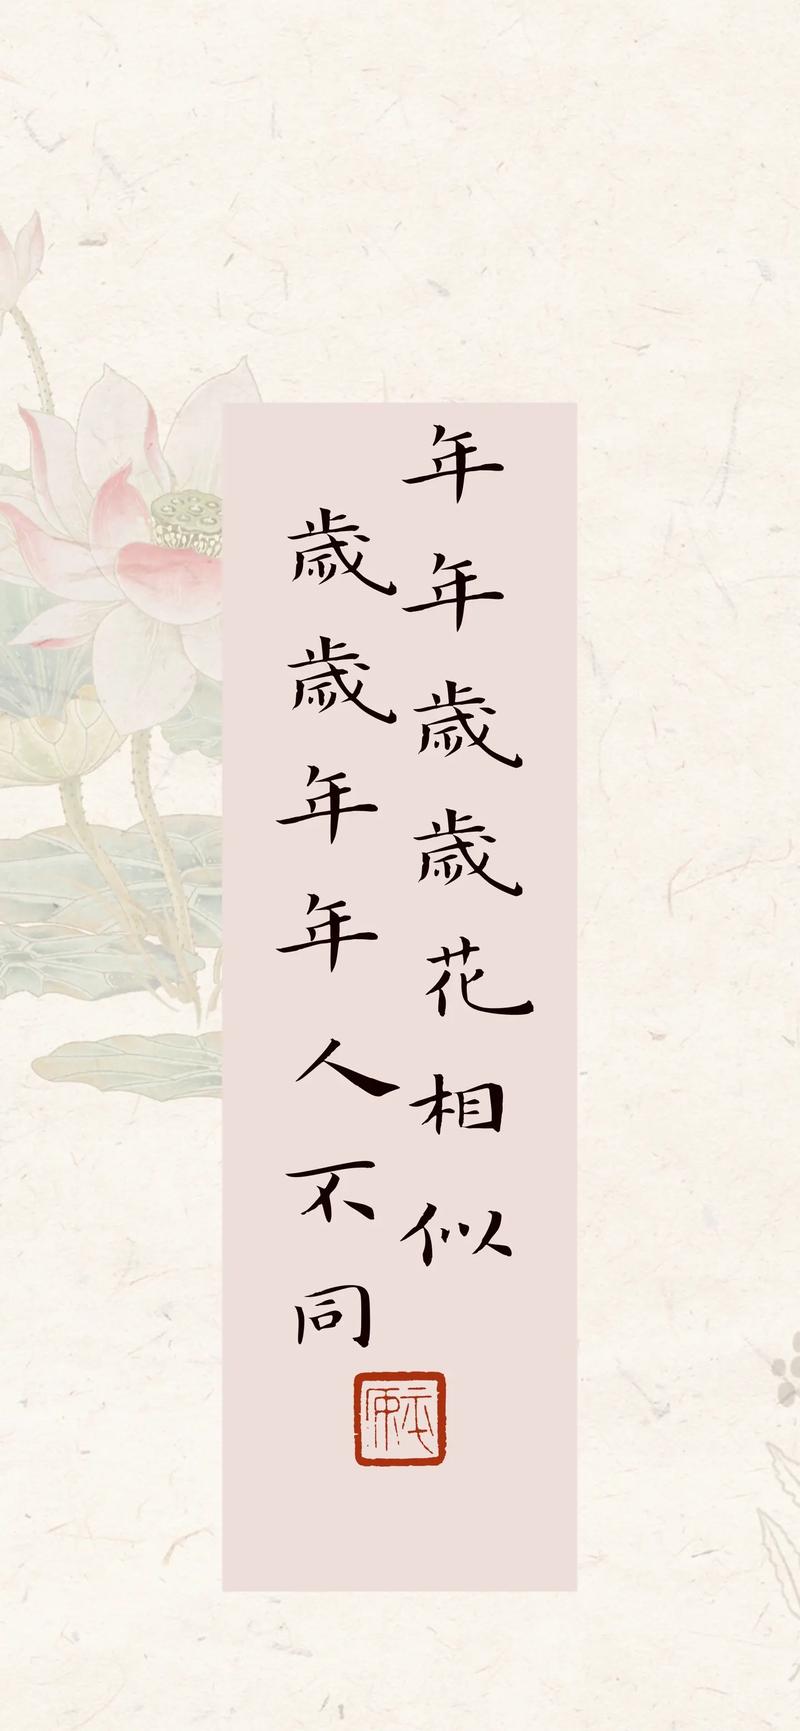 年年歲歲花相似
歲歲年年人不同